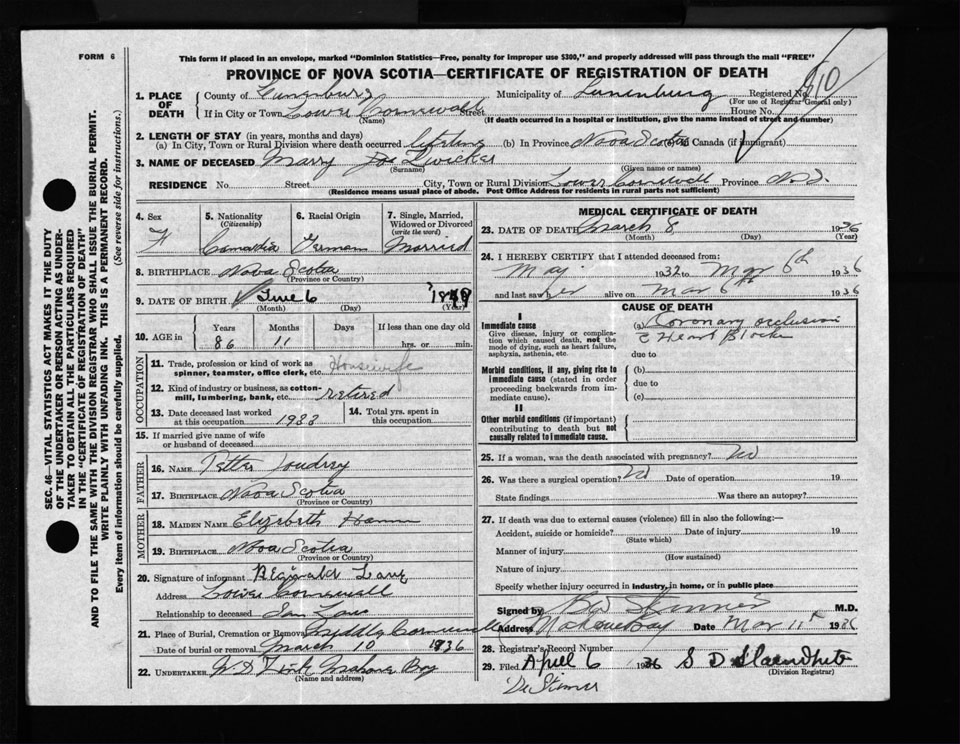 FORM 6
This form if placed in an envelope, marked "Dominion Statistics—Free, penalty for improper use $300," and properly addressed will pass through the mail "FREE"
PROVINCE OF NOVA SCOTIA—CERTIFICATE OF REGISTRATION OF DEATH
810
1. PLACE OF DEATH { County of Lunenburg Municipality of Lunenburg Registered No.
(For use of Registrar General only)
If in City or Town Lower Cornewald Street House No.
(Name) (If death occurred in a hospital or institution, give the name instead of street and number)
2. LENGTH OF STAY (in years, months and days)
(a) In City, Town or Rural Division where death occurred (b) In Province Nova Scotia (c) In Canada (if immigrant)
3. NAME OF DECEASED Marry Zwicker
(Surname) (Given name or names)
RESIDENCE No. Street City, Town or Rural Division Lower Cornewall Province N.S.
(Residence means usual place of abode. Post Office Address for residents in rural parts not sufficient)
4. Sex F
5. Nationality (Citizenship) Canadia
6. Racial Origin German
7. Single, Married, Widowed or Divorced (write the word) Married
8. BIRTHPLACE Nova Scotia
(Province or Country)
9. DATE OF BIRTH June 6 1849
(Month) (Day) (Year)
10. AGE in Years Months Days If less than one day old
86 11 hrs. or min.
OCCUPATION
11. Trade, profession or kind of work as spinner, teamster, office clerk, etc. Housewife
12. Kind of industry or business, as cotton-mill, lumbering, bank, etc. retired
13. Date deceased last worked at this occupation 1933
14. Total yrs. spent in this occupation
15. If married give name of wife or husband of deceased
FATHER
16. NAME Petter
17. BIRTHPLACE Nova Scotia
(Province or Country)
MOTHER
18. MAIDEN NAME Elizabeth Hamm
19. BIRTHPLACE Nova Scotia
(Province or Country)
20. Signature of informant Reginald
Address Lower Cornewall
Relationship to deceased Son Law
21. Place of Burial, Cremation or Removal
Date of burial or removal March 10 1936
22. UNDERTAKER W D Mahone Bay
(Name and address)
MEDICAL CERTIFICATE OF DEATH
23. DATE OF DEATH March 8 1936
(Month) (Day) (Year)
24. I HEREBY CERTIFY that I attended deceased from:
May 1932 to Mar 6th 1936
and last saw her alive on Mar 6th 1936
CAUSE OF DEATH
I
Immediate cause
Give disease, injury or complication which caused death, not the mode of dying, such as heart failure, asphyxia, asthenia, etc.
(a) Coronary occlusion
Heart Block
due to
Morbid conditions, if any, giving rise to immediate cause (stated in order proceeding backwards from immediate cause).
(b)
due to
(c)
II
Other morbid conditions (if important) contributing to death but not causally related to immediate cause.
25. If a woman, was the death associated with pregnancy? No
26. Was there a surgical operation? No Date of operation 19
State findings Was there an autopsy?
27. If death was due to external causes (violence) fill in also the following:—
Accident, suicide or homicide? Date of injury 19
(State which)
Manner of injury
(How sustained)
Nature of injury
Specify whether injury occurred in industry, in home, or in public place
Signed by M.D.
Address Mahone Bay Date Mar 11th 1936
28. Registrar's Record Number
29. Filed April 6 1936 S D
(Division Registrar)
SEC. 46—VITAL STATISTICS ACT MAKES IT THE DUTY
OF THE UNDERTAKER OR PERSON ACTING AS UNDERTAKER
TO OBTAIN ALL THE PARTICULARS REQUIRED
IN THE "CERTIFICATE OF REGISTRATION OF DEATH"
AND TO FILE THE SAME WITH THE DIVISION REGISTRAR WHO SHALL ISSUE THE BURIAL PERMIT.
WRITE PLAINLY WITH UNFADING INK. THIS IS A PERMANENT RECORD.
Every item of information should be carefully supplied. (See reverse side for instructions.)